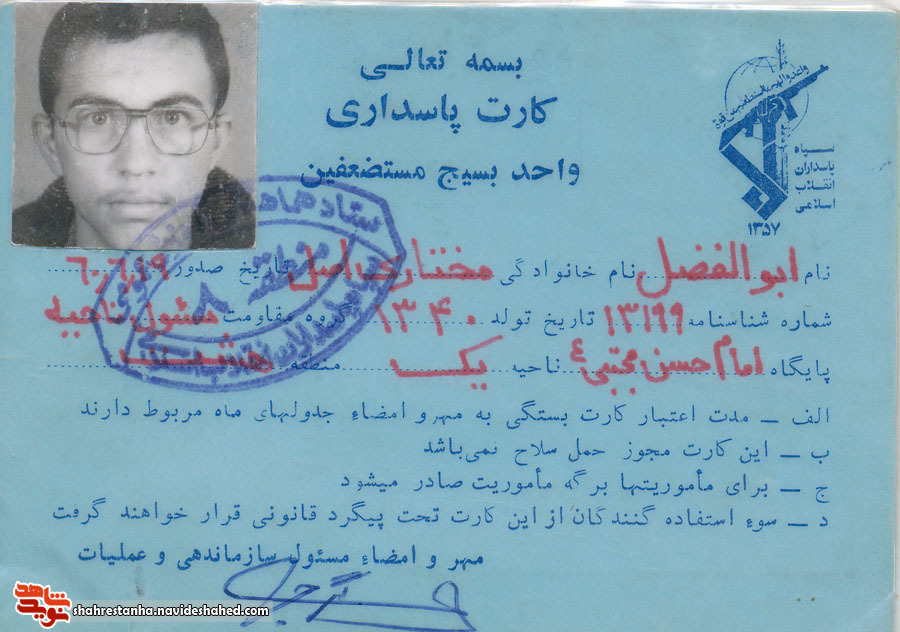 بسمه تعالی
کارت پاسداری
واحد بسیج مستضعفین
سپاه
پاسداران
انقلاب
اسلامی
۱۳۵۷
نام ابوالفضل نام خانوادگی مختاری اصل تاریخ صدور ۶۰.۶.۱۹
شماره شناسنامه ۱۳۱۹۹ تاریخ تولد ۱۳۴۰ گروه مقاومت مسئول ناحیه
پایگاه امام حسن مجتبی ع ناحیه یک منطقه هشت
الف ــ مدت اعتبار کارت بستگی به مهر و امضاء جدولهای ماه مربوط دارند
ب ــ این کارت مجوز حمل سلاح نمی‌باشد
ج ــ برای مأموریتها برگه مأموریت صادر میشود
د ــ سوء استفاده گنندگان از این کارت تحت پیگرد قانونی قرار خواهند گرفت
مهر و امضاء مسئول سازماندهی و عملیات
ستاد
منطقه
پاسداران انقلاب
نوید شاهد
shahrestanha.navideshahed.com